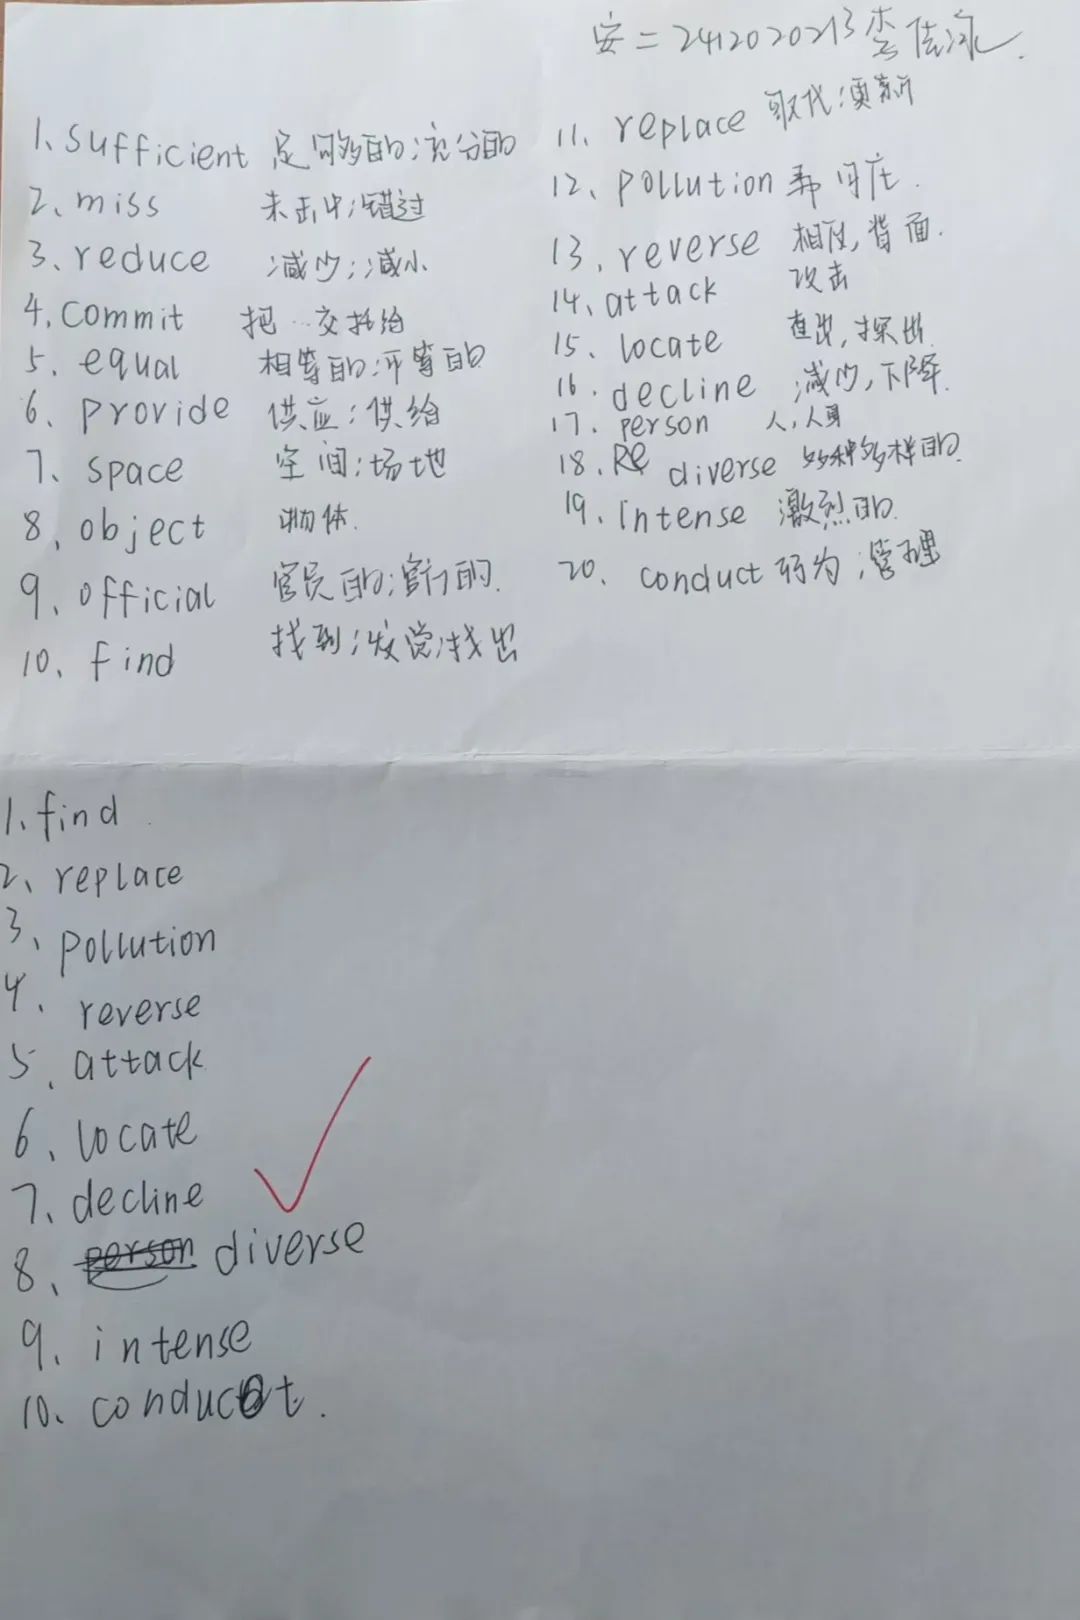 安二 2412020213 李佳冰
1. sufficient 足够的;充分的
2. miss 未击中;错过
3. reduce 减少;减小
4. commit 把…交托给
5. equal 相等的;平等的
6. provide 供应;供给
7. space 空间;场地
8. object 物体.
9. official 官员的;官方的.
10. find 找到;发觉;找出
11. replace 取代;更新
12. pollution
13. reverse 相反,背面.
14. attack 攻击
15. locate 查出,探出.
16. decline 减少,下降.
17. person 人,人身
18. Re diverse 多种多样的.
19. intense 激烈的.
20. conduct 行为;管理
1. find.
2. replace
3. pollution
4. reverse
5. attack
6. locate
7. decline
8. person diverse
9. intense
10. conduct.